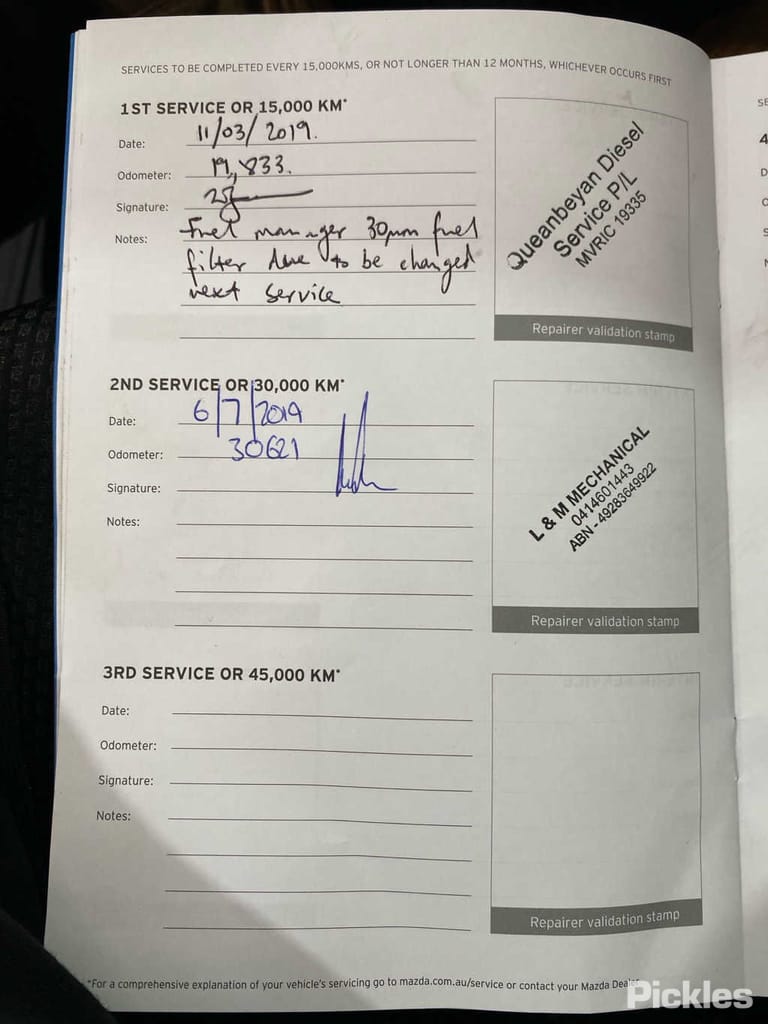 SERVICES TO BE COMPLETED EVERY 15,000KMS, OR NOT LONGER THAN 12 MONTHS, WHICHEVER OCCURS FIRST
1ST SERVICE OR 15,000 KM*
Date: 11/03/2019.
Odometer: 19,833.
Signature:
Notes: Fuel manager 30µm fuel
filter due to be changed
next service
Queanbeyan Diesel
Service P/L
MVRIC 19335
Repairer validation stamp
2ND SERVICE OR 30,000 KM*
Date: 6/7/2019
Odometer: 30621
Signature:
Notes:
L & M MECHANICAL
0414601443
ABN - 49283649922
Repairer validation stamp
3RD SERVICE OR 45,000 KM*
Date:
Odometer:
Signature:
Notes:
Repairer validation stamp
*For a comprehensive explanation of your vehicle's servicing go to mazda.com.au/service or contact your Mazda
Pickles